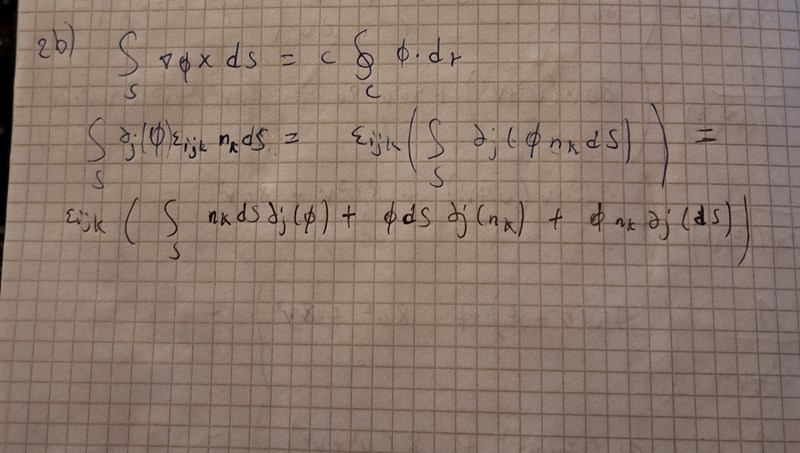 2b) ∫_S ∇ϕ x ds = c ∮_C ϕ · dr
∫_S ∂j(ϕ) εijk nk dS = εijk ( ∫_S ∂j (ϕ nk dS) ) =
εijk ( ∫_S nk dS ∂j(ϕ) + ϕ dS ∂j(nk) + ϕ nk ∂j(dS) )